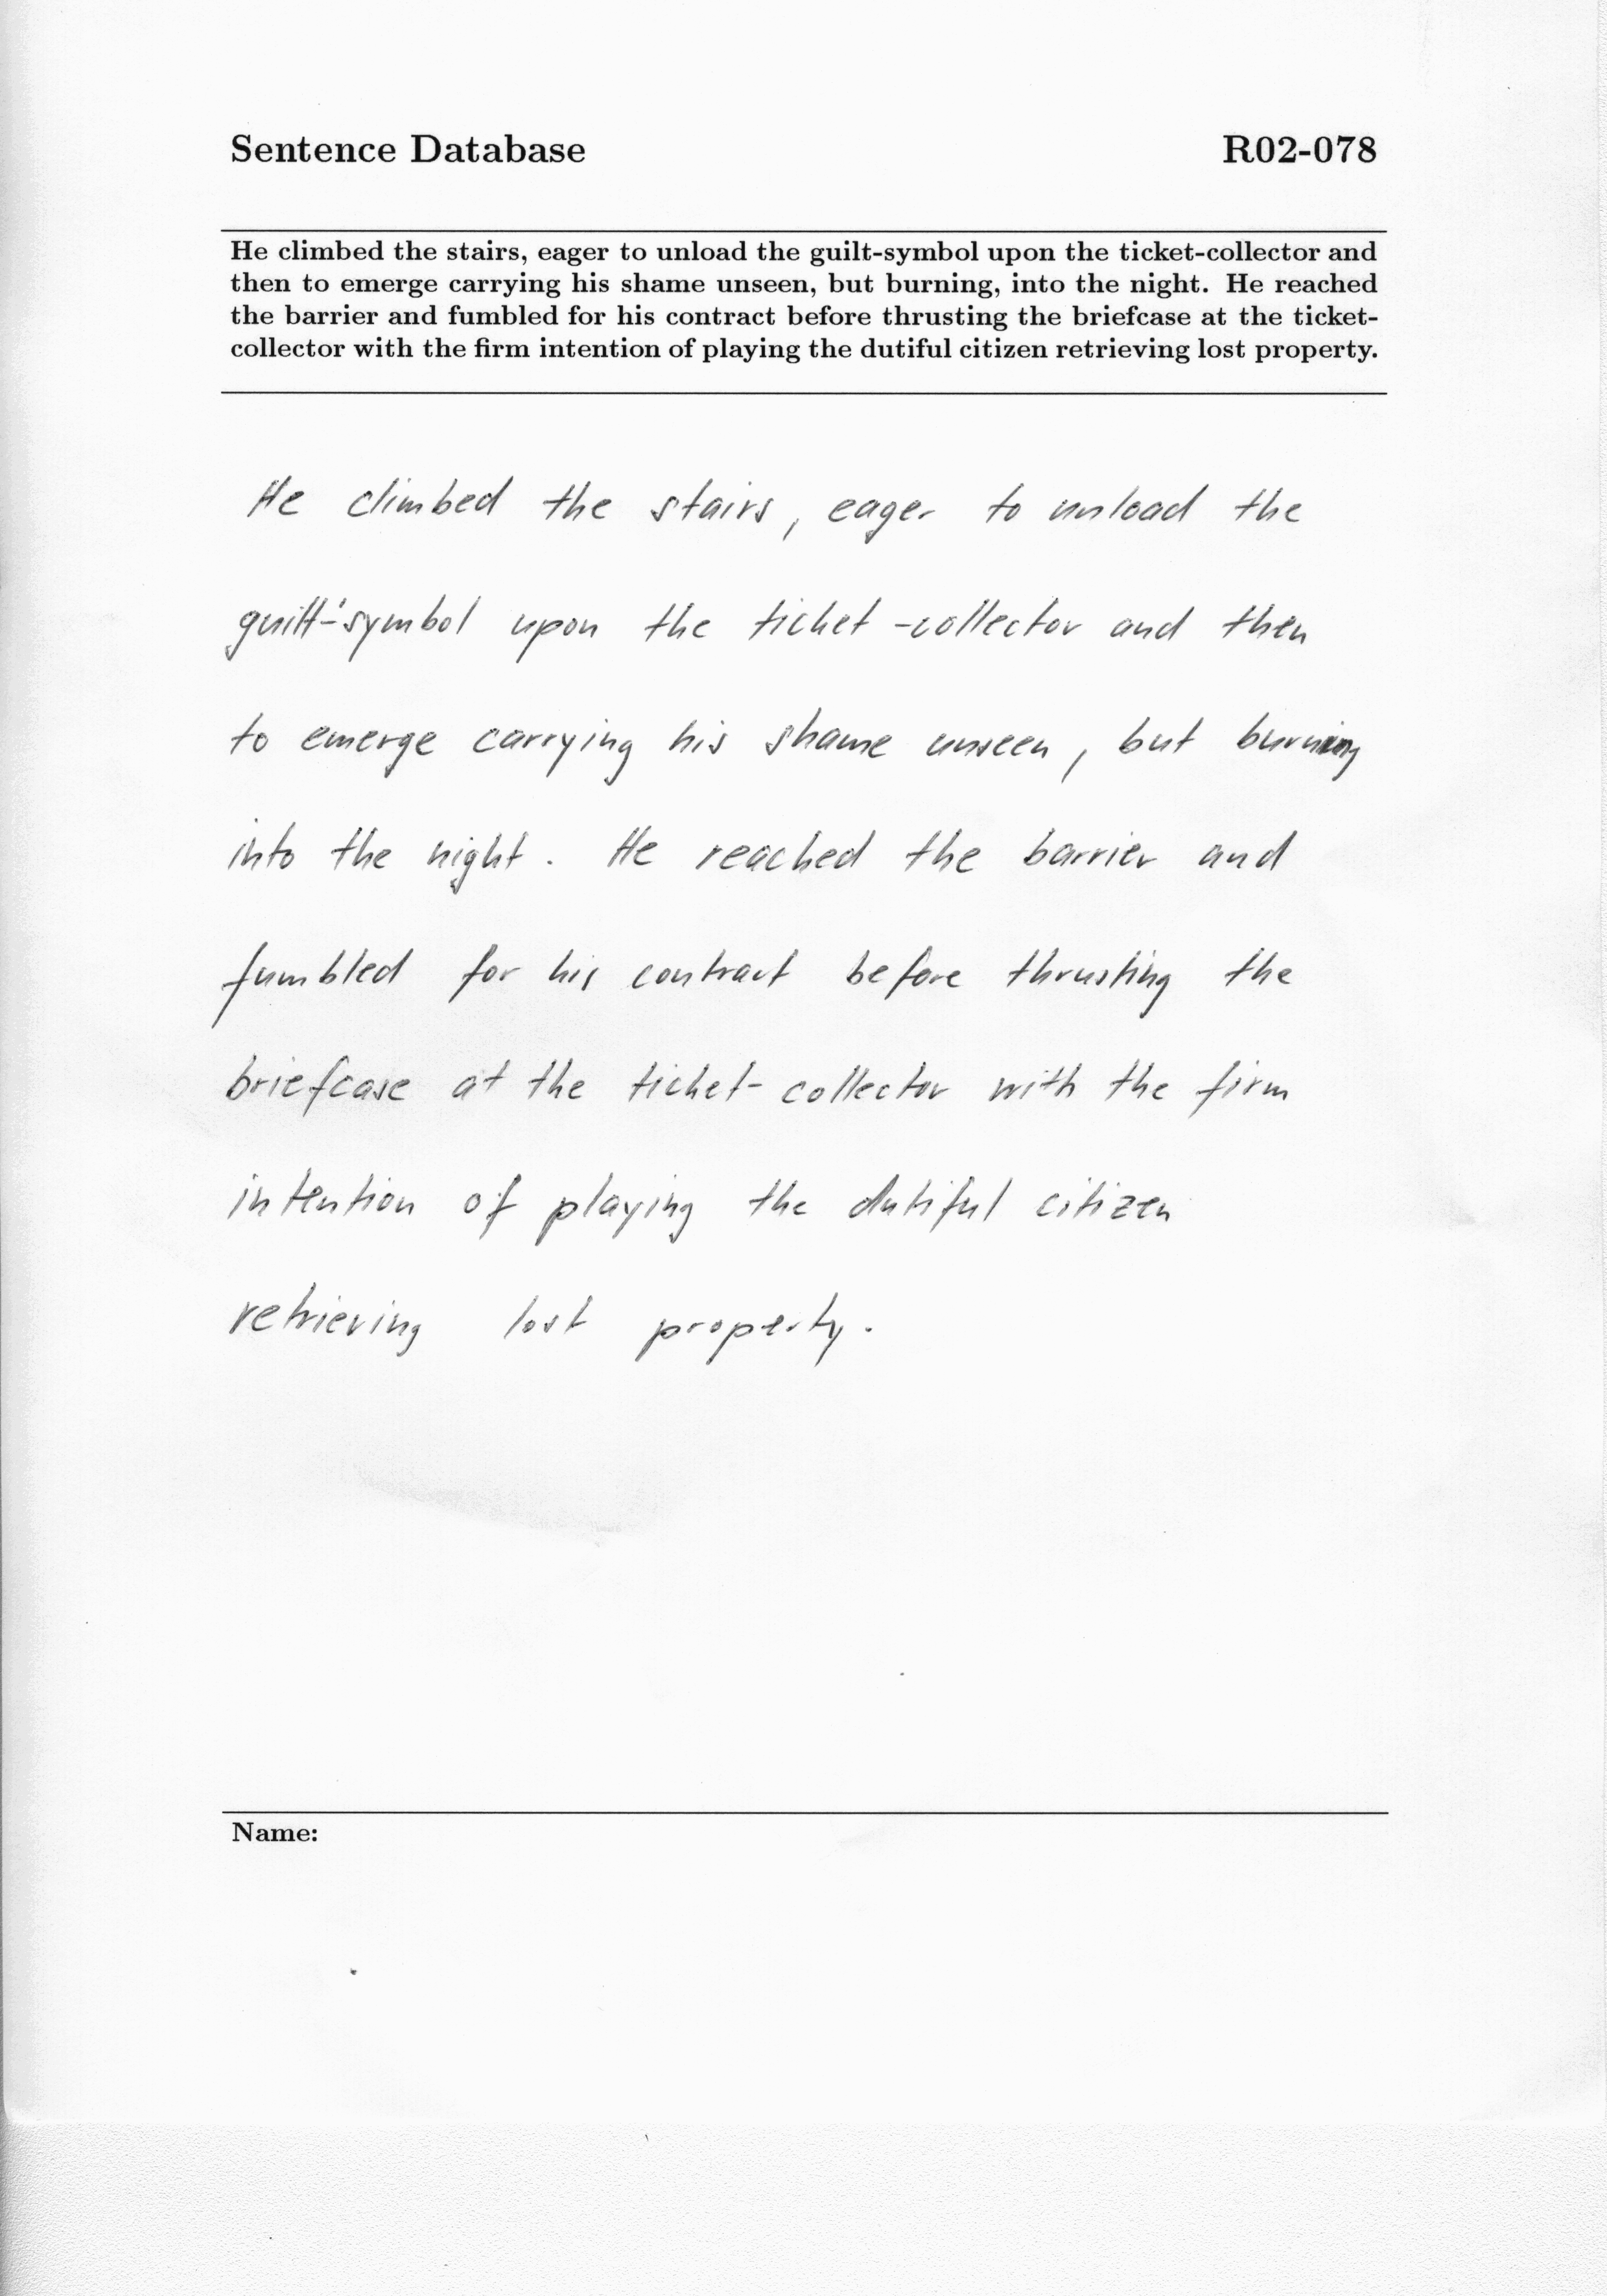 Sentence Database R02-078
He climbed the stairs, eager to unload the guilt-symbol upon the ticket-collector and
then to emerge carrying his shame unseen, but burning, into the night. He reached
the barrier and fumbled for his contract before thrusting the briefcase at the ticket-
collector with the firm intention of playing the dutiful citizen retrieving lost property.
He climbed the stairs, eager to unload the
guilt-symbol upon the ticket-collector and then
to emerge carrying his shame unseen, but burning
into the night. He reached the barrier and
fumbled for his contract before thrusting the
briefcase at the ticket-collector with the firm
intention of playing the dutiful citizen
retrieving lost property.
Name: